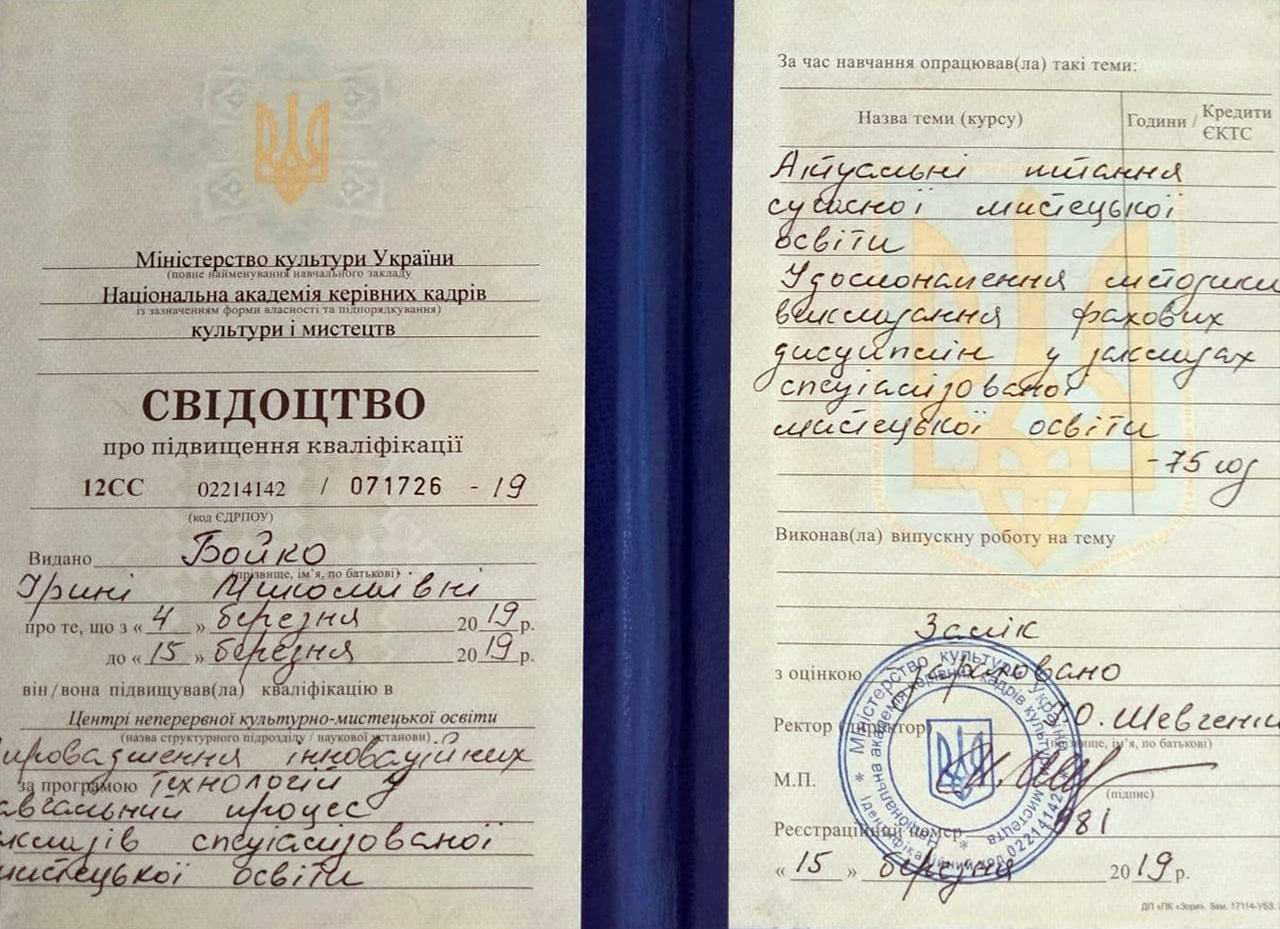 Міністерство культури України
(повне найменування навчального закладу
Національна академія керівних кадрів
із зазначенням форми власності та підпорядкування)
культури і мистецтв
СВІДОЦТВО
про підвищення кваліфікації
12СС 02214142 / 071726 - 19
(код ЄДРПОУ)
Видано Бойко
(прізвище, ім’я, по батькові)
Ірині Миколаївні
про те, що з « 4 » березня 2019 р.
до « 15 » березня 2019 р.
він/вона підвищував(ла) кваліфікацію в
Центрі неперервної культурно-мистецької освіти
(назва структурного підрозділу / наукової установи)
провадження інноваційних
за програмою технологій у
авчальний процес
акладів спеціалізованої
мистецької освіти
За час навчання опрацював(ла) такі теми:
Назва теми (курсу) Години / Кредити ЄКТС
Актуальні питання
сучасної мистецької
освіти
Удосконалення методики
викладання фахових
дисциплін у закладах
спеціалізованої
мистецької освіти
- 75 год
Виконав(ла) випускну роботу на тему
Залік
з оцінкою зараховано
Ректор (директор) Ю. Шевченк
(прізвище, ім’я, по батькові)
М.П.
(підпис)
Реєстраційний номер 881
« 15 » березня 2019 р.
Міністерство культури України
Національна академія керівних кадрів культури і мистецтв
Ідентифікаційний код 02214142
ДП «ПК «Зоря». Зам. 17114-УБЗ.